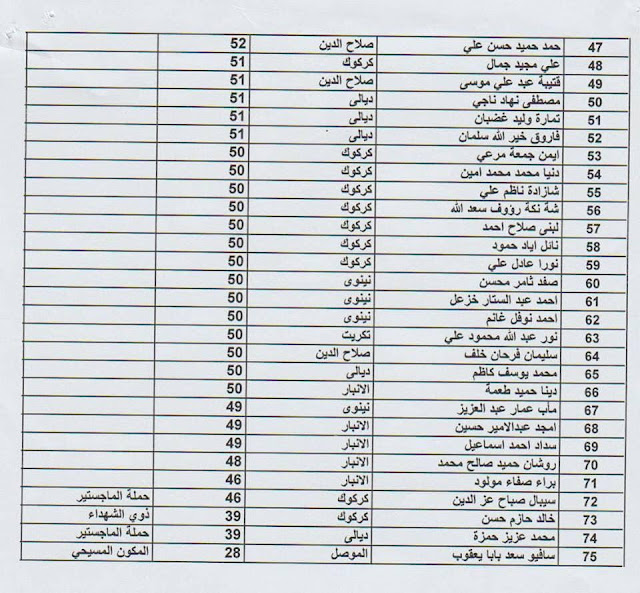 47 حمد حميد حسن علي صلاح الدين 52
48 علي مجيد جمال كركوك 51
49 قتيبة عبد علي موسى صلاح الدين 51
50 مصطفى نهاد ناجي ديالى 51
51 تمارة وليد غضبان ديالى 51
52 فاروق خير الله سلمان ديالى 51
53 ايمن جمعة مرعي كركوك 50
54 دنيا محمد محمد امين كركوك 50
55 شازادة ناظم علي كركوك 50
56 شة نكة رؤوف سعد الله كركوك 50
57 لبنى صلاح احمد كركوك 50
58 نائل اياد حمود كركوك 50
59 نورا عادل علي كركوك 50
60 صفد ثامر محسن نينوى 50
61 احمد عبد الستار خزعل نينوى 50
62 احمد نوفل غانم نينوى 50
63 نور عبد الله محمود علي تكريت 50
64 سليمان فرحان خلف صلاح الدين 50
65 محمد يوسف كاظم ديالى 50
66 دينا حميد طعمة الانبار 50
67 مآب عمار عبد العزيز نينوى 49
68 امجد عبدالامير حسين الانبار 49
69 سداد احمد اسماعيل الانبار 49
70 روشان حميد صالح محمد الانبار 48
71 براء صفاء مولود الانبار 46
72 سيبال صباح عز الدين كركوك 46 حملة الماجستير
73 خالد حازم حسن كركوك 39 ذوي الشهداء
74 محمد عزيز حمزة ديالى 39 حملة الماجستير
75 سافيو سعد بابا يعقوب الموصل 28 المكون المسيحي